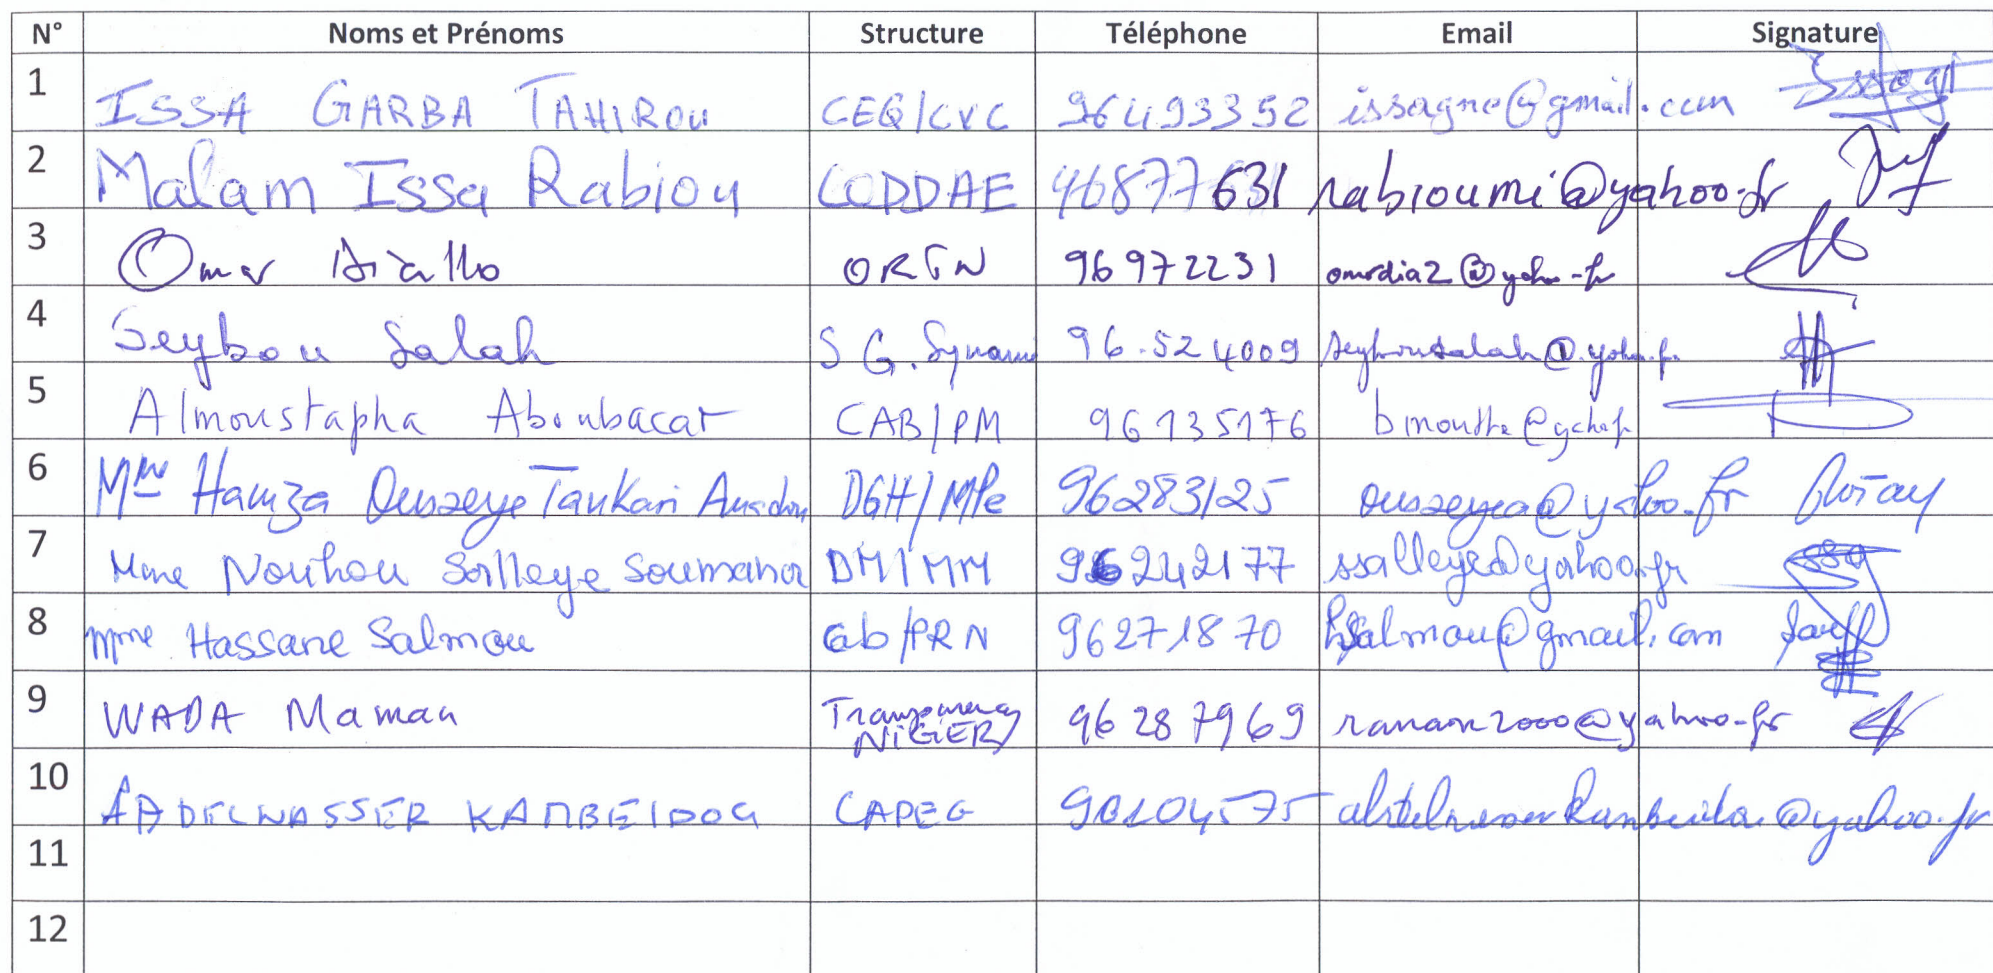 N° Noms et Prénoms Structure Téléphone Email Signature
1 ISSA GARBA TAHIROU CEQ/CVC 96493352 issagne@gmail.com
2 Malam Issa Rabiou CODDAE 96877631 rabioumi@yahoo.fr
3 Omar Diallo ORTN 96972231 omardia2@yahoo.fr
4 Seybou Salah S G. 96.524009 seybousalah@yahoo.fr
5 Almoustapha Aboubacar CAB/PM 96135176 bmoustha@yahoo.fr
6 Mme Hamza Ousseye Tankari Amadou DGH/MPe 96283125 ousseyea@yahoo.fr
7 Mme Nouhou Salleye Soumana DM/MM 96242177 ssalleye@yahoo.fr
8 Mme Hassane Salmou Cab/PRN 96271870 hsalmou@gmail.com
9 WADA Maman Transparency NIGER 96287969 ranaan2000@yahoo.fr
10 ABDELNASSER KAMBEIDOU CAPEG 90104575 abdelnasserkambeidou@yahoo.fr
11
12